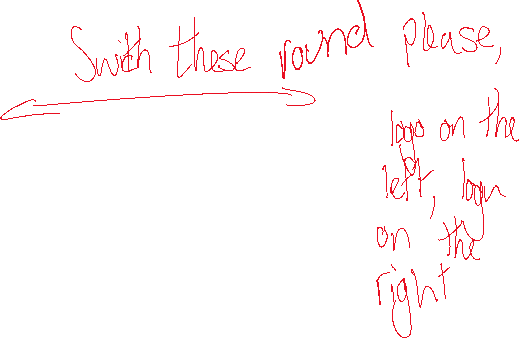 Swith these round please,
logo on the
left, login
on the
right